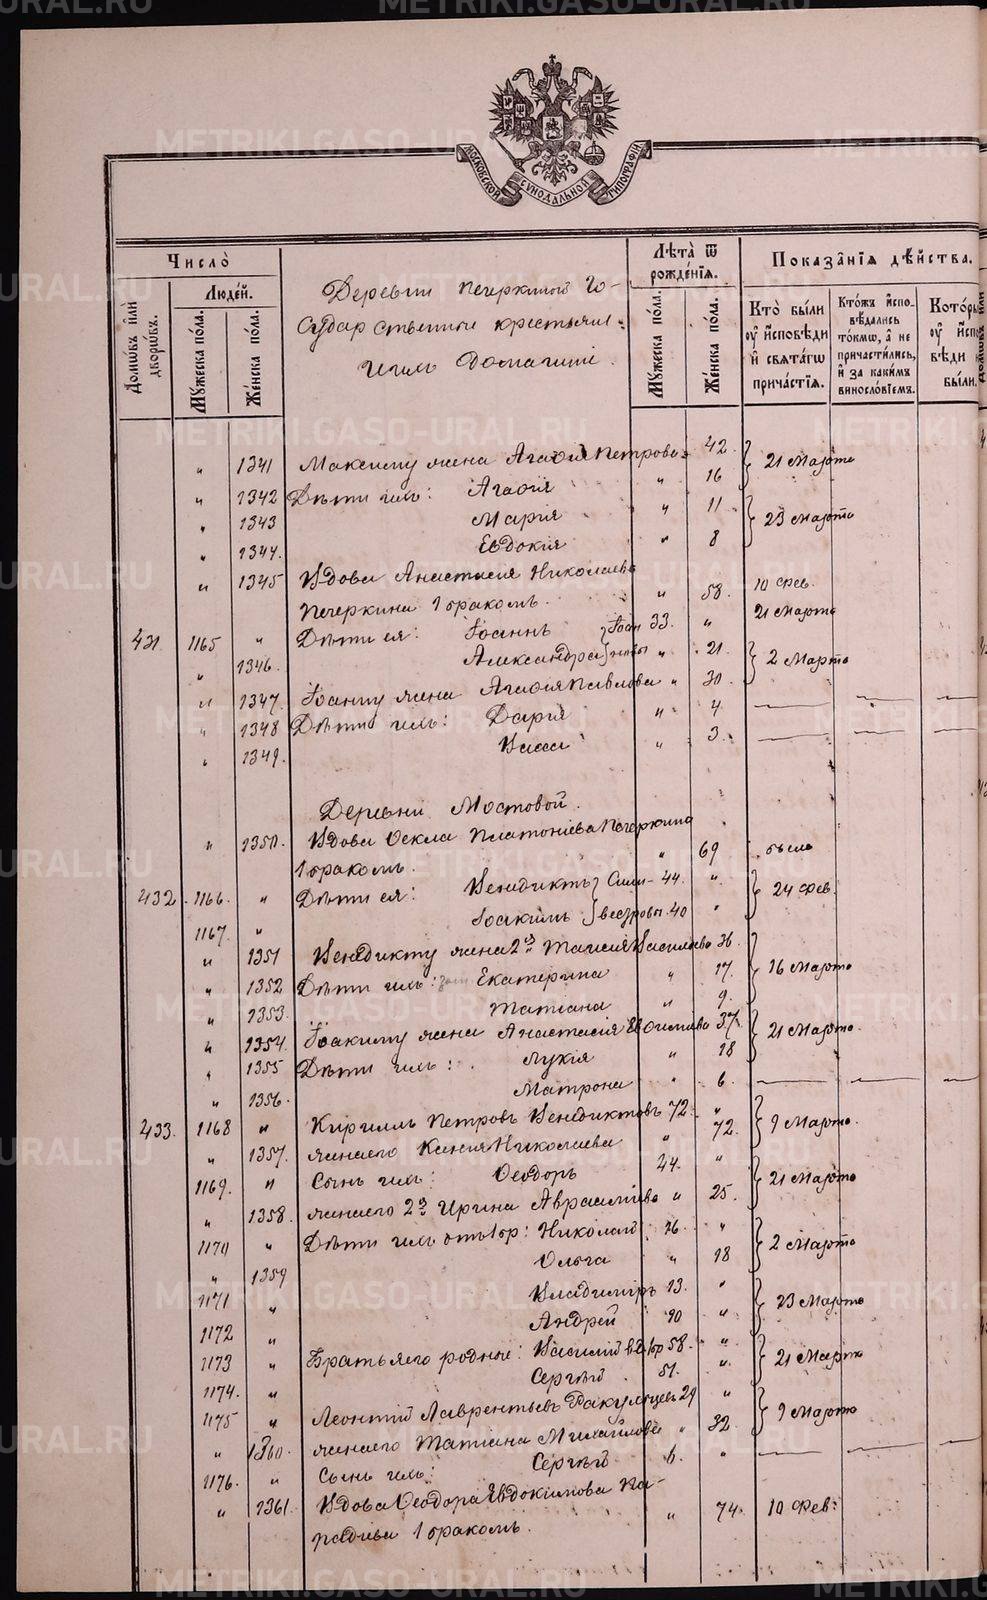 МОСКОВСКОЙ СѴНОДАЛЬНОЙ ТИПОГРАФІИ
Число̀
Домѡвъ и҆лѝ дворѡвъ.
Люде́й.
Мꙋ́жеска по́ла.
Же́нска по́ла.
Деревни Печеркиной Го-
сударственные крестьяне
и ихъ домашніе.
Лѣ́та ѿ рожде́нїѧ.
Мꙋ́жеска по́ла.
Же́нска по́ла.
Показа̑нїѧ дѣ́йства.
Кто̀ бы́ли оу҆ и҆́сповѣди и҆ свѧта́гѡ прича́стїѧ.
Кто́жъ и҆спо-вѣ́дались то́кмѡ, а҆ не причасти́лись, и҆ за каки́мъ винослові́емъ.
" 1341 Максиму жена Агафія Петрова " 42 21 Марта
" 1342 Дѣти ихъ: Агафія " 16
" 1343 Марія " 11 23 Марта
" 1344. Евдокія " 8
" 1345 Вдова Анастасія Николаева
Печеркина 1 бракомъ. " 58. 10 Фев.
431 1165 " Дѣти ея: Іоаннъ 33. " 21 Марта
" 1346. Александра " 21. 2 Марта
" 1347. Іоанну жена Агафія Павлова " 30.
" 1348 Дѣти ихъ: Дарія " 4
" 1349. Васса " 3.
Деревни Мостовой.
" 1350. Вдова Ѳекла Платонова Печеркина
1 бракомъ. " 69
432 1166. " Дѣти ея: Венедиктъ Сили- 44. " 24 Фев.
1167. " Іоакимъ вестровы 40 "
" 1351 Венедикту жена 2я Таисія Васильева 36.
" 1352 Дѣти ихъ: Екатерина " 17. 16 Марта
" 1353. Татіана " 9.
" 1354. Іоакиму жена Анастасія Евфимова 37. 21 Марта.
" 1355 Дѣти ихъ: Лукія " 18
" 1356. Матрона " 6.
433. 1168 " Кириллъ Петровъ Венедиктовъ 72. " 9 Марта.
" 1357. жена его Ксенія Николаева " 72.
1169. " Сынъ ихъ: Ѳеодоръ 44. " 21 Марта
" 1358. жена его 2я Ирина Авраамова " 25.
1170 " Дѣти ихъ отъ 1 бр: Николай 16 " 2 Марта
" 1359 Ольга " 18
1171 " Владиміръ 13. " 23 Марта
1172 " Андрей 10 "
1173 " Братья его родные: Василій вд. 1 бр 58. " 21 Марта
1174. " Сергѣй 51. "
1175 " Леонтій Лаврентьевъ Ракульцевъ 29 " 9 Марта
" 1360. жена его Татіана Михайлова " 32.
1176. " Сынъ ихъ: Сергѣй 6. "
" 1361. Вдова Ѳеодора Евдокимова Ка-
 1 бракомъ. " 74 10 Фев:
METRIKI.GASO-URAL.RU